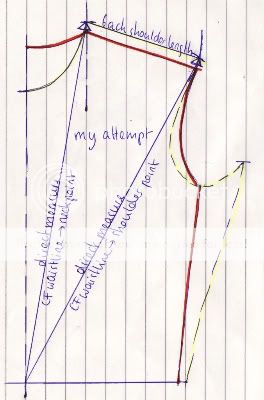 back shoulder length
my attempt
direct measure
CF waistline → neckpoint
direct measure
CF waistline → shoulder point